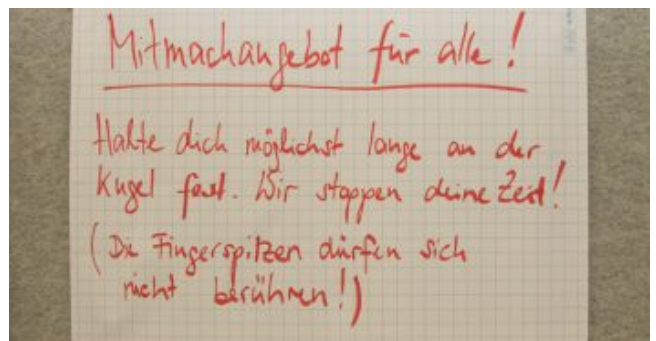 Mitmachangebot für alle!
Halte dich möglichst lange an der
Kugel fest. Wir stoppen deine Zeit!
(Die Fingerspitzen dürfen sich
nicht berühren!)